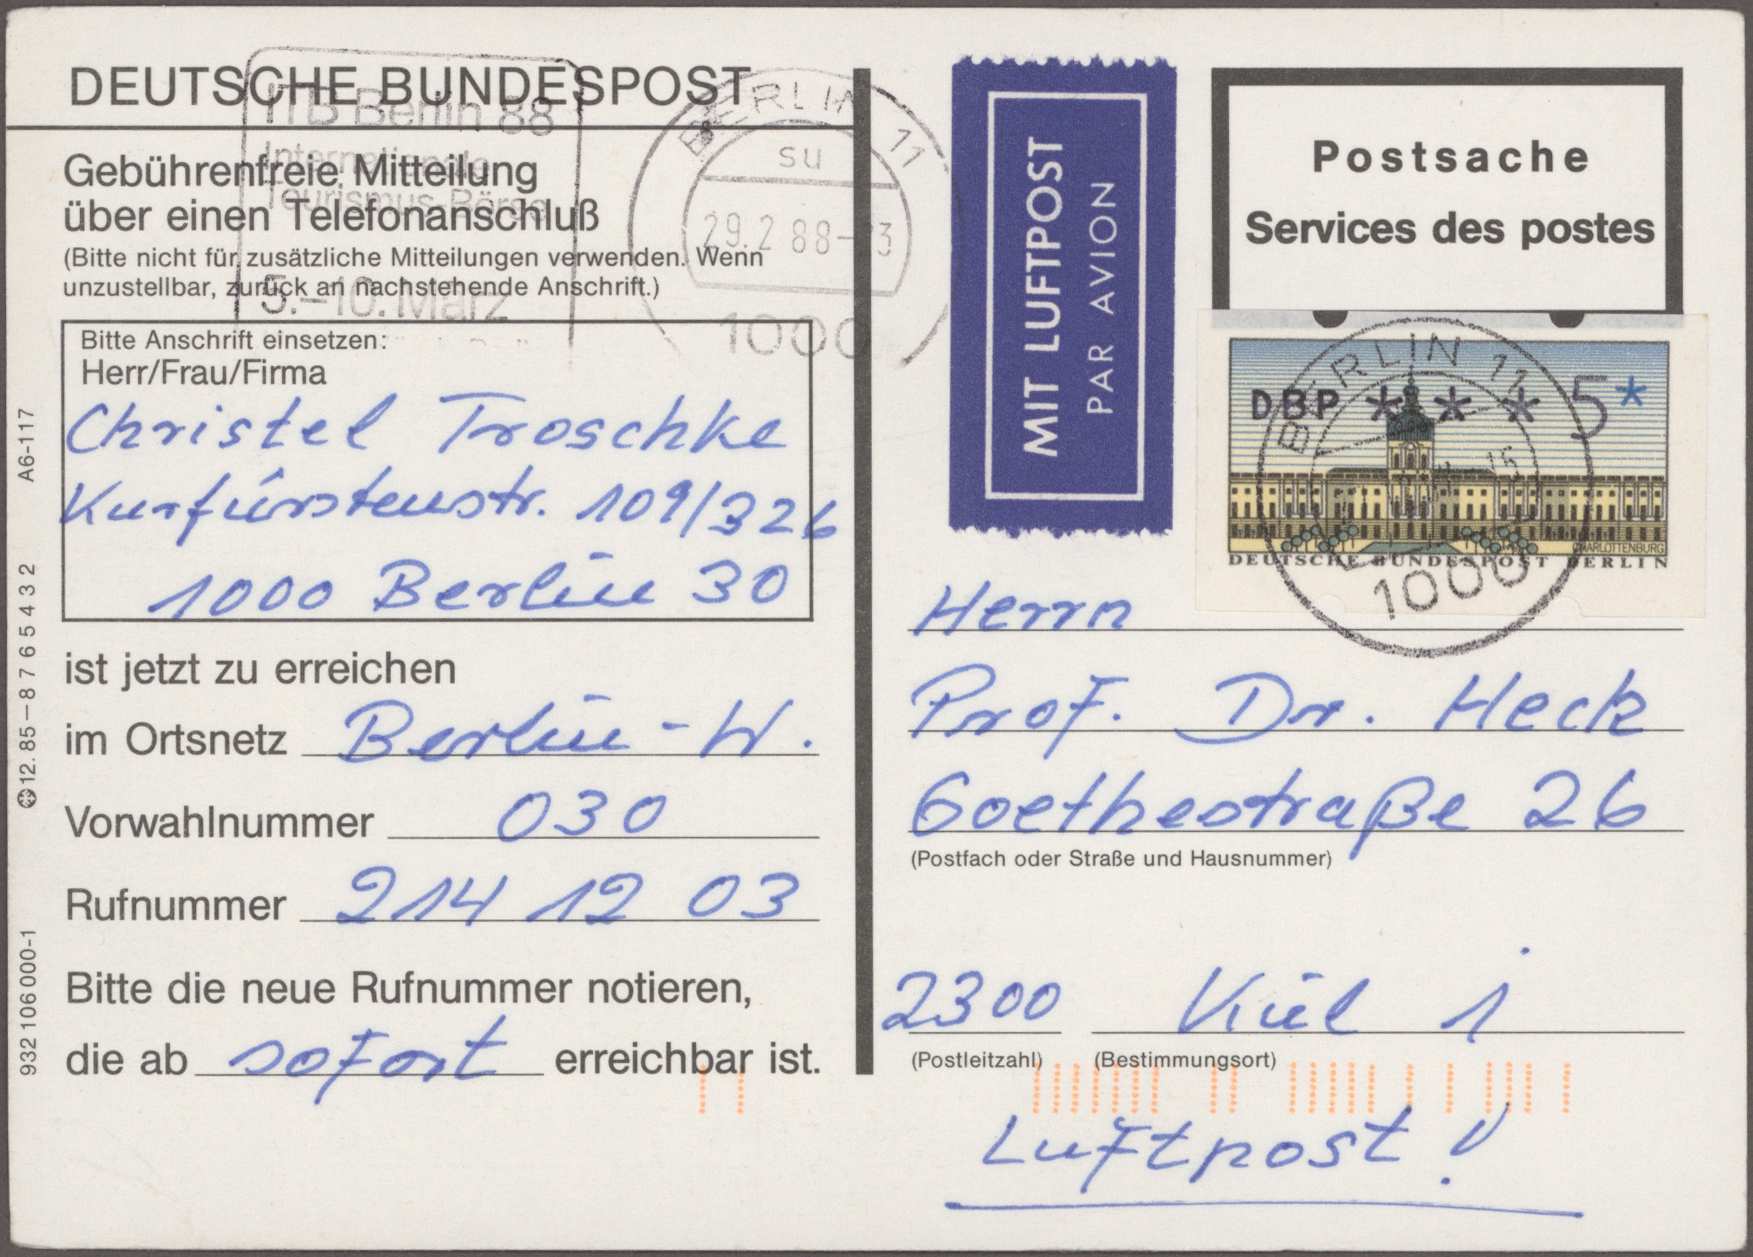 DEUTSCHE BUNDESPOST
ITB Berlin 88
Internationale
Tourismus-Börse
5.–10. März
BERLIN 11
su
29.2.88-
1000
Gebührenfreie Mitteilung
über einen Telefonanschluß
(Bitte nicht für zusätzliche Mitteilungen verwenden. Wenn
unzustellbar, zurück an nachstehende Anschrift.)
Bitte Anschrift einsetzen:
Herr/Frau/Firma
Christel Troschke
Kurfürstenstr. 109/326
1000 Berlin 30
ist jetzt zu erreichen
im Ortsnetz Berlin-W.
Vorwahlnummer 030
Rufnummer 214 12 03
Bitte die neue Rufnummer notieren,
die ab sofort erreichbar ist.
932 106 000-1 12.85–8 7 6 5 5 4 3 2 A6-117
MIT LUFTPOST
PAR AVION
Postsache
Services des postes
DBP *** 5*
CHARLOTTENBURG
DEUTSCHE BUNDESPOST BERLIN
BERLIN 11
1000
Herrn
Prof. Dr. Heck
Goethestraße 26
(Postfach oder Straße und Hausnummer)
2300 Kiel 1
(Postleitzahl) (Bestimmungsort)
Luftpost!